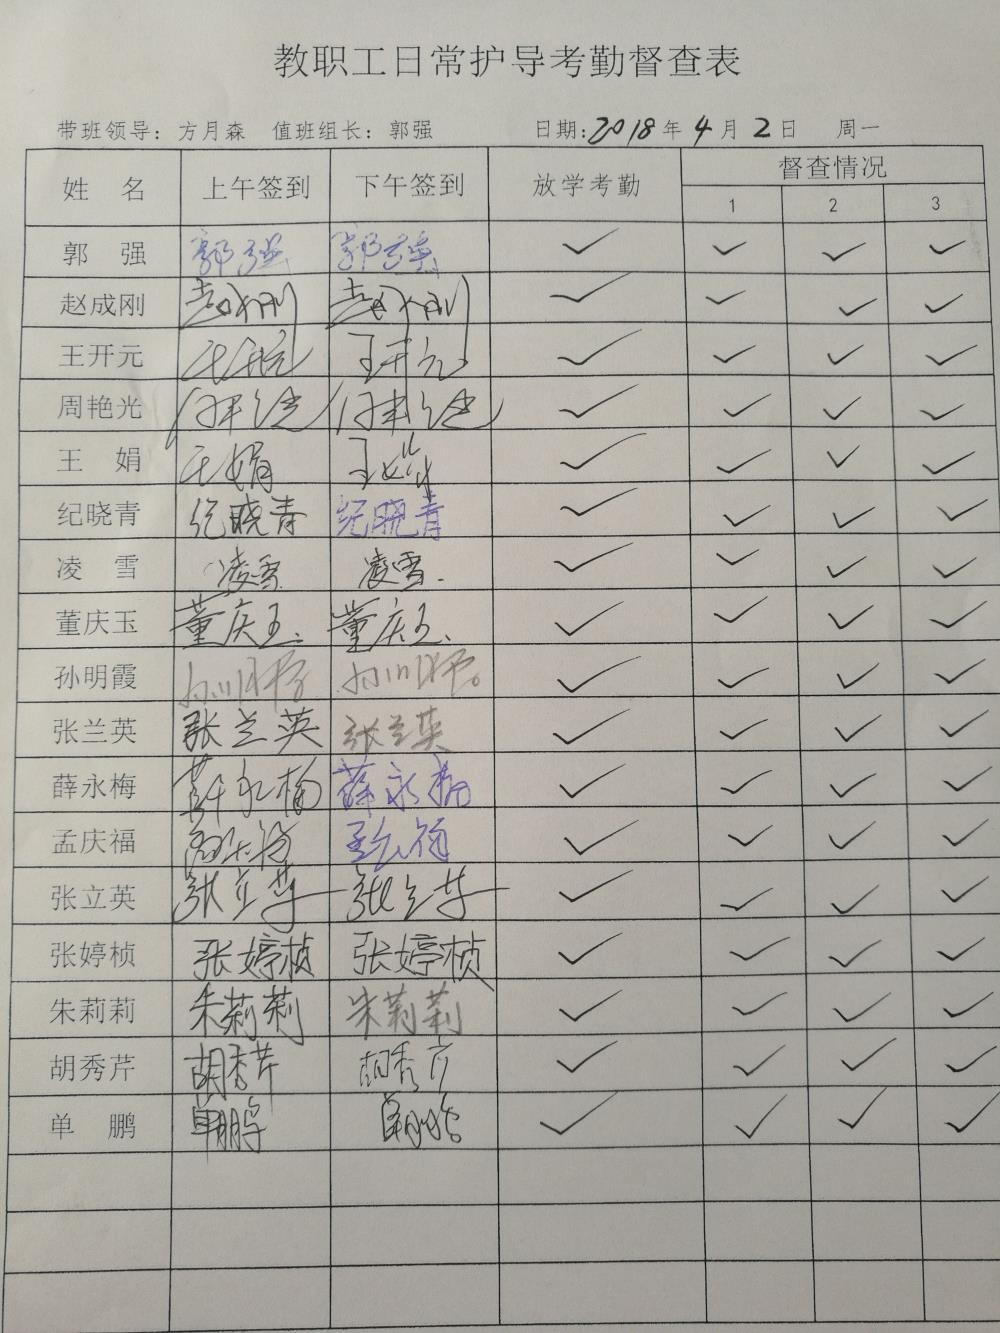 教职工日常护导考勤督查表
带班领导：方月森 值班组长：郭强 日期：2018年4月2日 周一
姓 名 上午签到 下午签到 放学考勤 督查情况
1 2 3
郭 强 郭强 郭强 ✓ ✓ ✓ ✓
赵成刚 赵成刚 赵成刚 ✓ ✓ ✓ ✓
王开元 王开元 王开元 ✓ ✓ ✓ ✓
周艳光 周艳光 周艳光 ✓ ✓ ✓ ✓
王 娟 王娟 王娟 ✓ ✓ ✓ ✓
纪晓青 纪晓青 纪晓青 ✓ ✓ ✓ ✓
凌 雪 凌雪 凌雪 ✓ ✓ ✓ ✓
董庆玉 董庆玉 董庆玉 ✓ ✓ ✓ ✓
孙明霞 孙明霞 孙明霞 ✓ ✓ ✓ ✓
张兰英 张兰英 张兰英 ✓ ✓ ✓ ✓
薛永梅 薛永梅 薛永梅 ✓ ✓ ✓ ✓
孟庆福 孟庆福 ✓ ✓ ✓ ✓
张立英 张立英 张立英 ✓ ✓ ✓ ✓
张婷桢 张婷桢 张婷桢 ✓ ✓ ✓ ✓
朱莉莉 朱莉莉 朱莉莉 ✓ ✓ ✓ ✓
胡秀芹 胡秀芹 胡秀芹 ✓ ✓ ✓ ✓
单 鹏 单鹏 单鹏 ✓ ✓ ✓ ✓